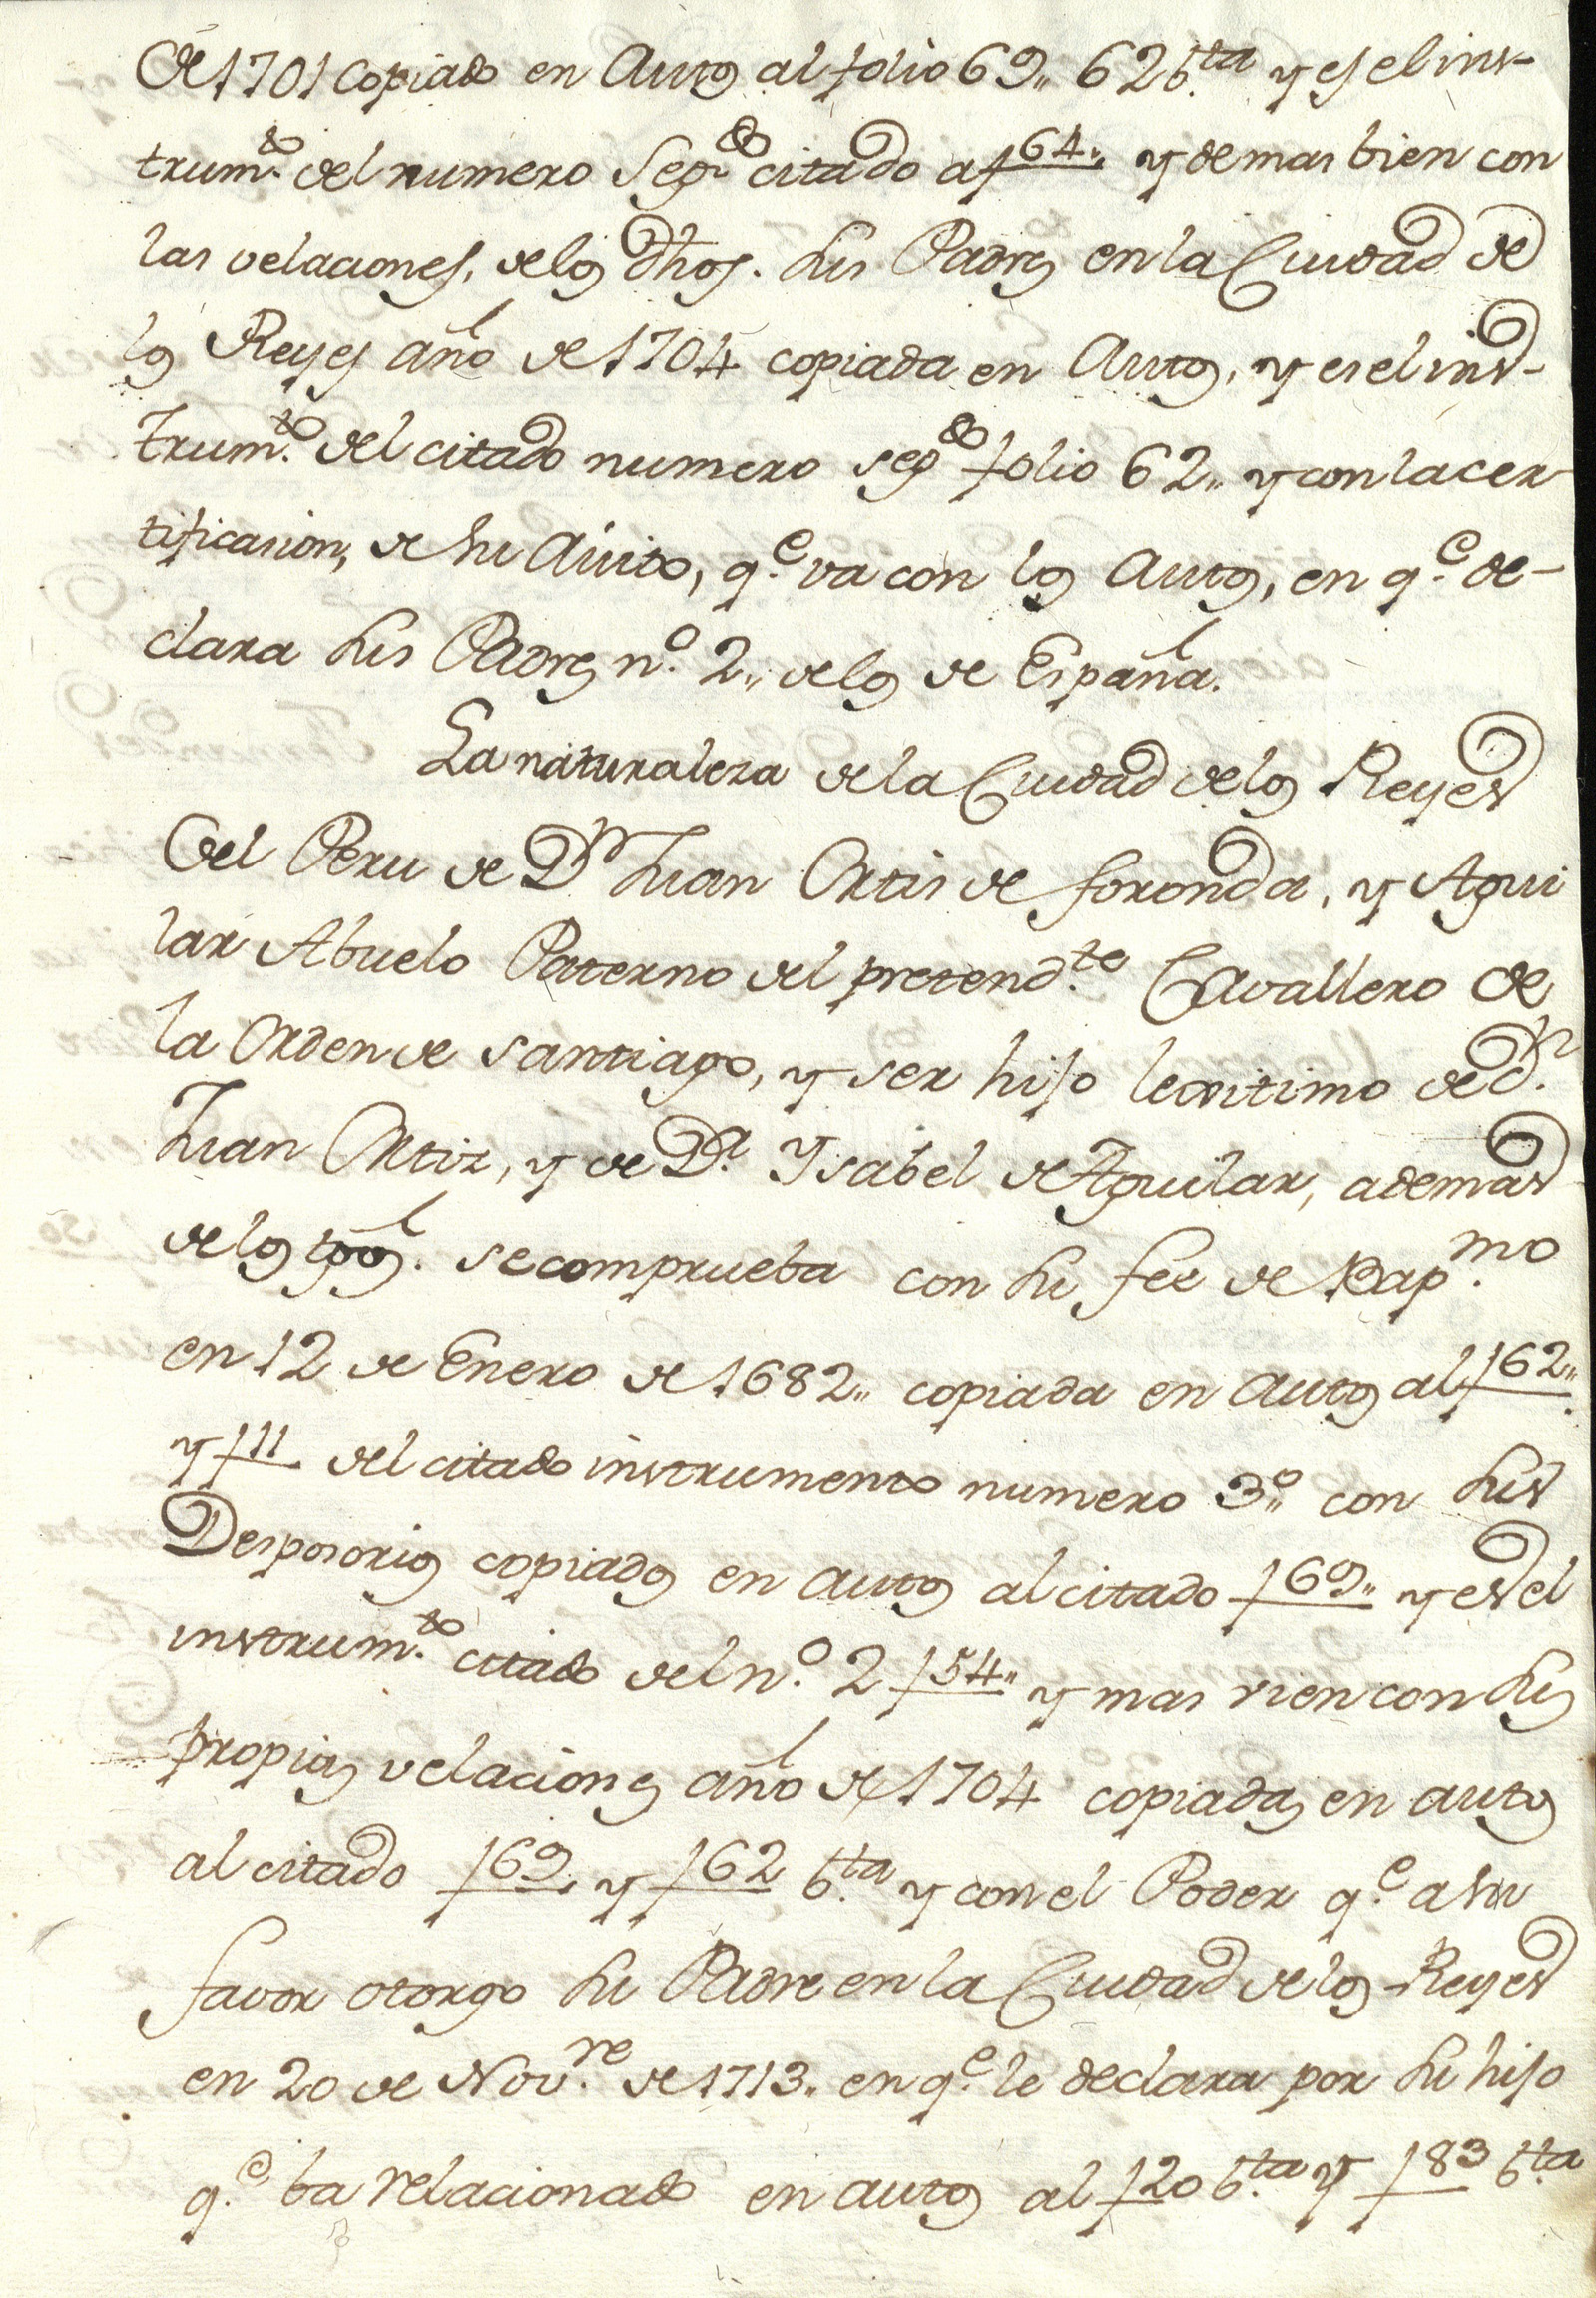 de 1701 Copiado en Autos al folio 69,, 62 b.ta y es el ins-
trum.to del numero Seg.do citado a f 64,, y demas bien con
las velaciones, de los dhos. sus Padres en la Ciudad de
los Reyes año de 1704 copiada en Autos, y es el ins-
trum.to del citado numero seg.do folio 62,, y con la cer-
tificasion, de su Avito, q.e va con los Autos, en q.e de-
clara sus Padres n.o 2,, de los de España.
La naturaleza de la Ciudad de los Reyes
del Peru de Dn Juan Ortis de foronda, y Agui
lar Abuelo Paterno del pretend.te Cavallero de
la Orden de Santiago, y ser hijo lexitimo de d.n
Juan Ortiz, y de D.a Ysabel de Aguilar, ademas
de los tgos. se comprueba con su fee de Bap.mo
en 12 de Enero de 1682,, copiada en autos al f 62,,
y f 11 del citado instrumento numero 3.o con sus
Desposorios copiados en autos al citado f 69,, y es el
instrum.to citado del n.o 2 f 54,, y mas vien con sus
propias velaciones año de 1704 copiadas en autos
al citado f 69, y f 62 b.ta y con el Poder q.e a su
favor otorgo su Padre en la Ciudad de los Reyes
en 20 de Nov.re de 1713,, en q.e le declara por su hijo
q.e ba relacionado en autos al f 20 b.ta y f 83 b.ta